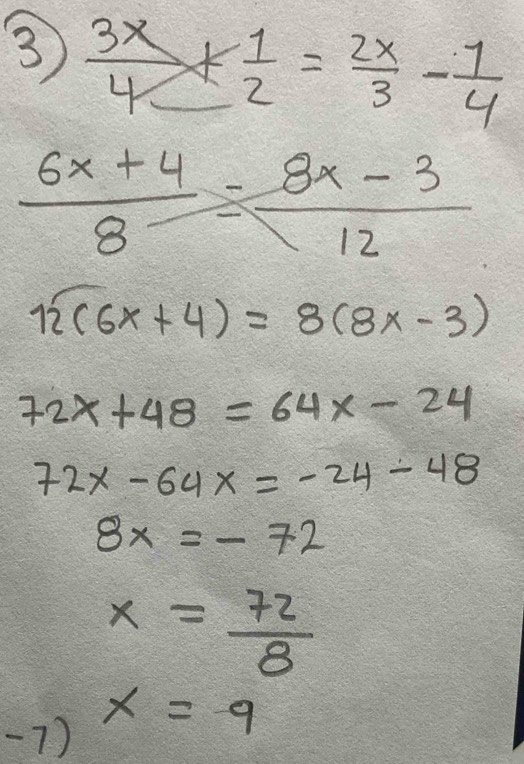 3) 3x/4 + 1/2 = 2x/3 - 1/4
6x + 4/8 = 8x - 3/12
12(6x+4) = 8(8x-3)
72x+48 = 64x - 24
72x - 64x = -24 - 48
8x = - 72
x = 72/8
x = 9
-7)